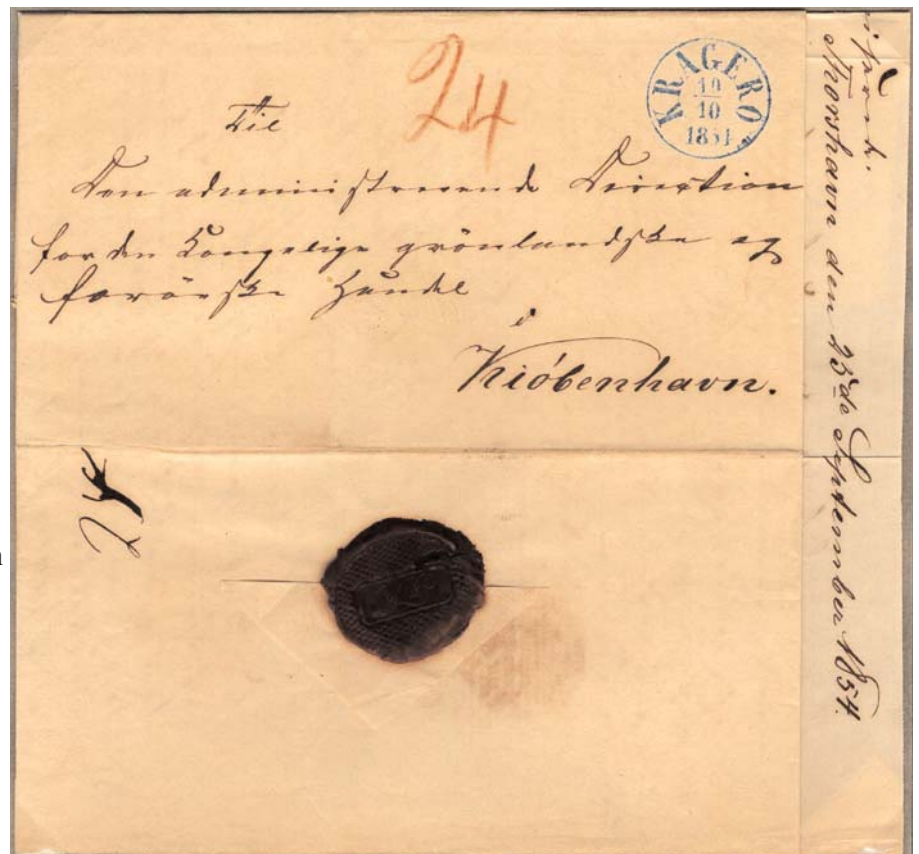 24
KRAGERO
10
1854
Til
Den administrerende Direction
for den Kongelige grönlandske og
færöeske Handel
i
Kiöbenhavn.
Thorshavn den 23de September 1854.